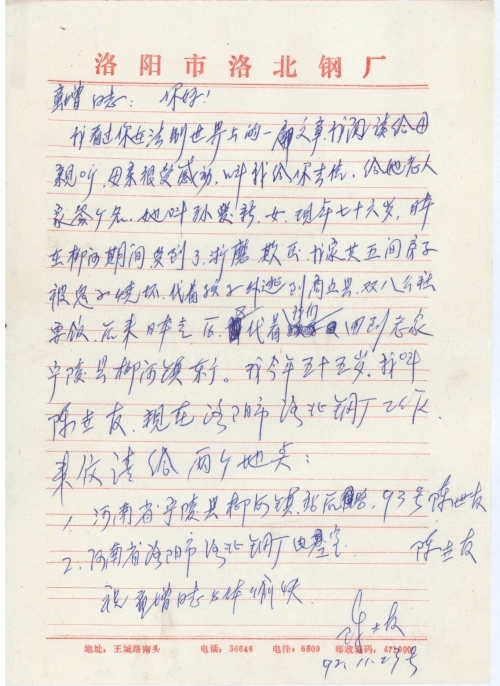 洛阳市洛北钢厂
童增同志：你好！
我看过你在法制世界上的一篇文章我阅读给母
亲听，母亲很受感动，叫我给你去信，给她老人
家签个名，她叫孙爱新，女，现年七十六岁，日本
在柳河期间受到了折磨欺压，我家共五间房子
被鬼子烧坏，代着孩子外逃到商丘县，双八公社
要饭，后来日本走后，又代着我们回到老家
宁陵县柳河镇东。我今年五十五岁，我叫
陈世友，现在洛阳市洛北钢厂工作
来信请给两个地点：
1、河南省宁陵县柳河镇，站后路，93号陈世友
2、河南省洛阳市洛北钢厂 陈世友
祝童增同志身体愉快
陈世友
92.11.29号
地址：王城路南头 电话：36646 电挂：6809 邮政编码：471000